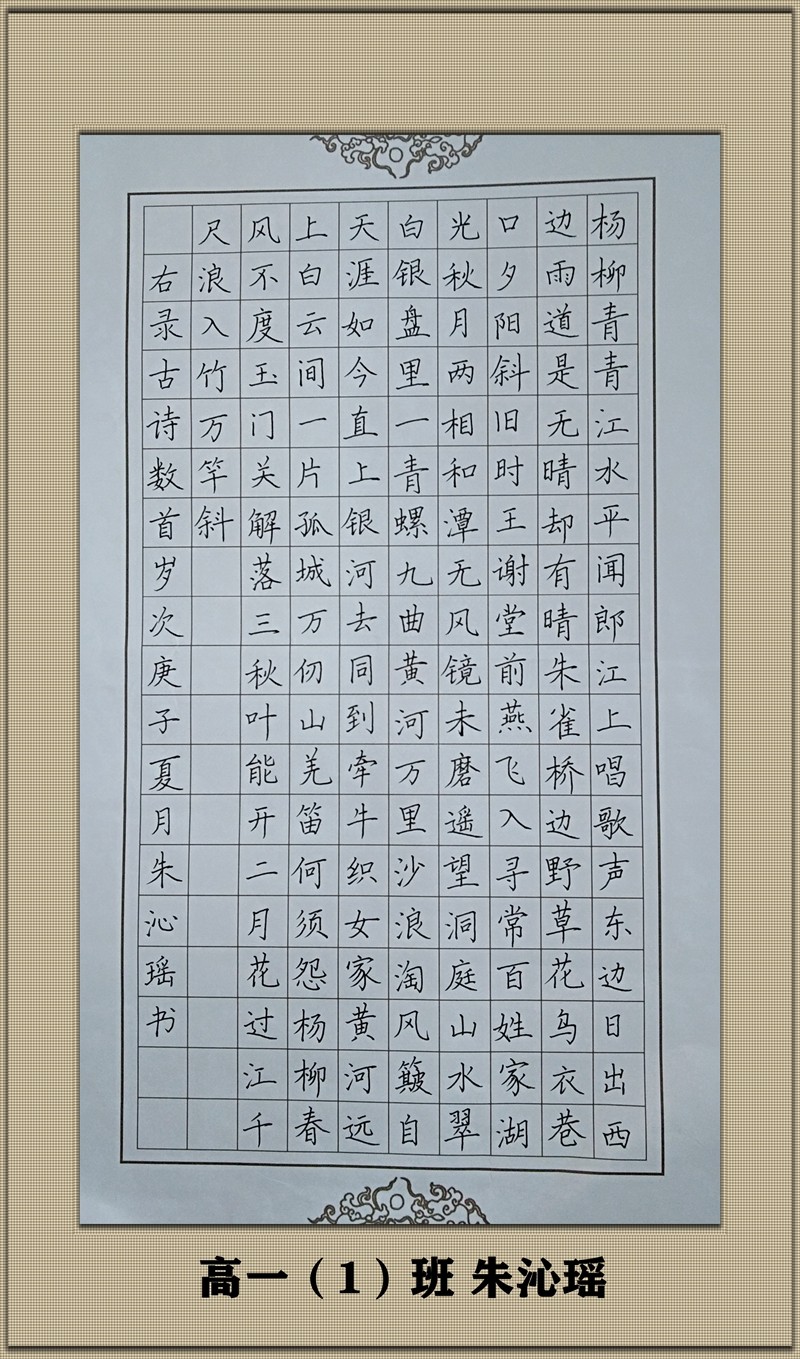 杨柳青青江水平闻郎江上唱歌声东边日出西
边雨道是无晴却有晴朱雀桥边野草花乌衣巷
口夕阳斜旧时王谢堂前燕飞入寻常百姓家湖
光秋月两相和潭无风镜未磨遥望洞庭山水翠
白银盘里一青螺九曲黄河万里沙浪淘风簸自
天涯如今直上银河去同到牵牛织女家黄河远
上白云间一片孤城万仞山羌笛何须怨杨柳春
风不度玉门关解落三秋叶能开二月花过江千
尺浪入竹万竿斜
右录古诗数首岁次庚子夏月朱沁瑶书
高一（1）班 朱沁瑶